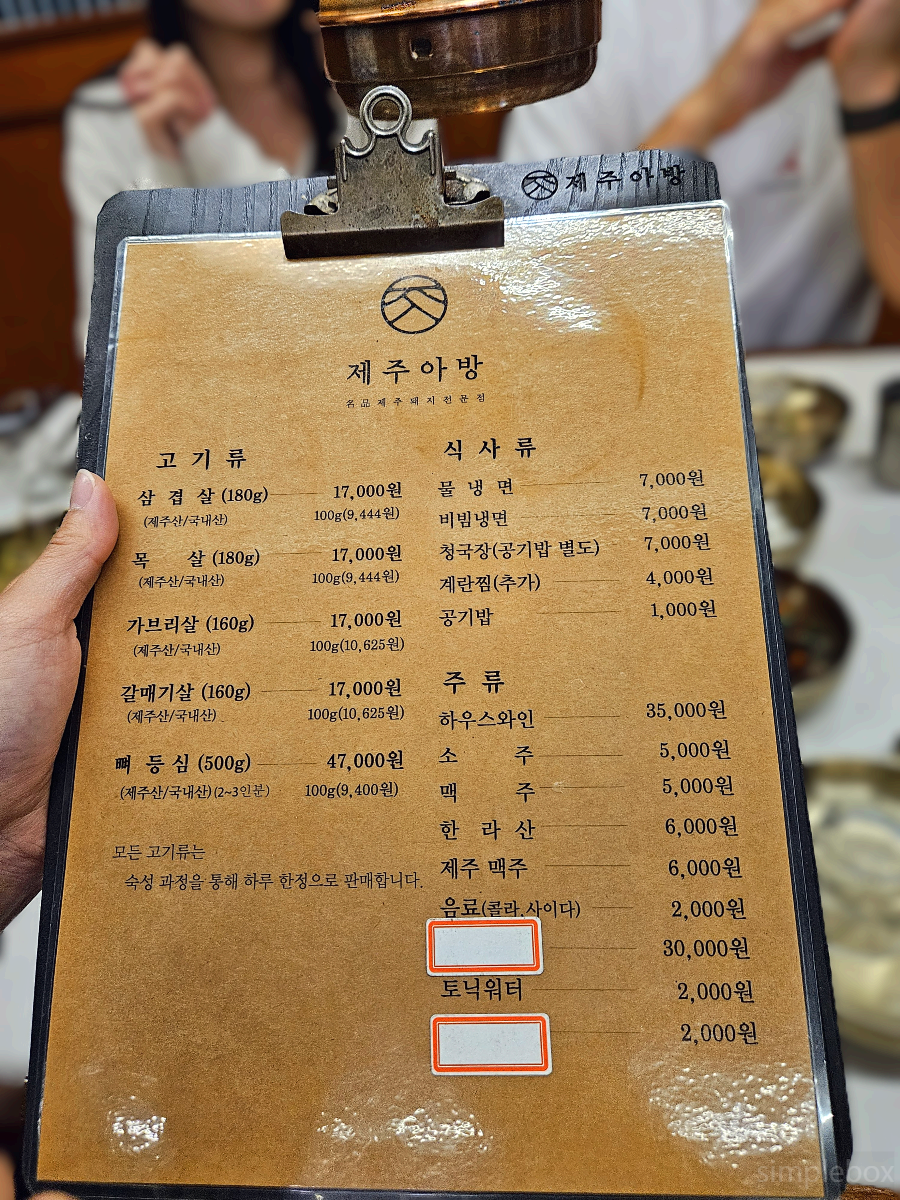 제주아방
제주아방
名品제주돼지전문점
고기류
삼겹살 (180g) 17,000원
(제주산/국내산) 100g(9,444원)
목살 (180g) 17,000원
(제주산/국내산) 100g(9,444원)
가브리살 (160g) 17,000원
(제주산/국내산) 100g(10,625원)
갈매기살 (160g) 17,000원
(제주산/국내산) 100g(10,625원)
뼈등심 (500g) 47,000원
(제주산/국내산)(2~3인분) 100g(9,400원)
모든 고기류는
숙성 과정을 통해 하루 한정으로 판매합니다.
식사류
물냉면 7,000원
비빔냉면 7,000원
청국장(공기밥 별도) 7,000원
계란찜(추가) 4,000원
공기밥 1,000원
주류
하우스와인 35,000원
소주 5,000원
맥주 5,000원
한라산 6,000원
제주 맥주 6,000원
음료(콜라,사이다) 2,000원
30,000원
토닉워터 2,000원
2,000원
simplebox